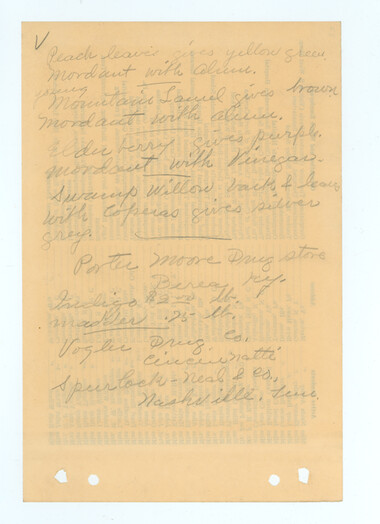 ✓
Peach leaves gives yellow green.
Mordant with alum.
young
Mountain Laurel gives brown
Mordant with alum.
Elderberry gives purple.
Mordant with Vinegar.
Swamp Willow bark & leaves
with Coperas gives silver
grey.
Porter Moore Drug store
Berea, Ky.
Indigo $2.00 lb.
madder .75 lb.
Vogler Drug Co.
Cincinnatti
Spurlock-Neal & Co.,
Nashville, Tenn.